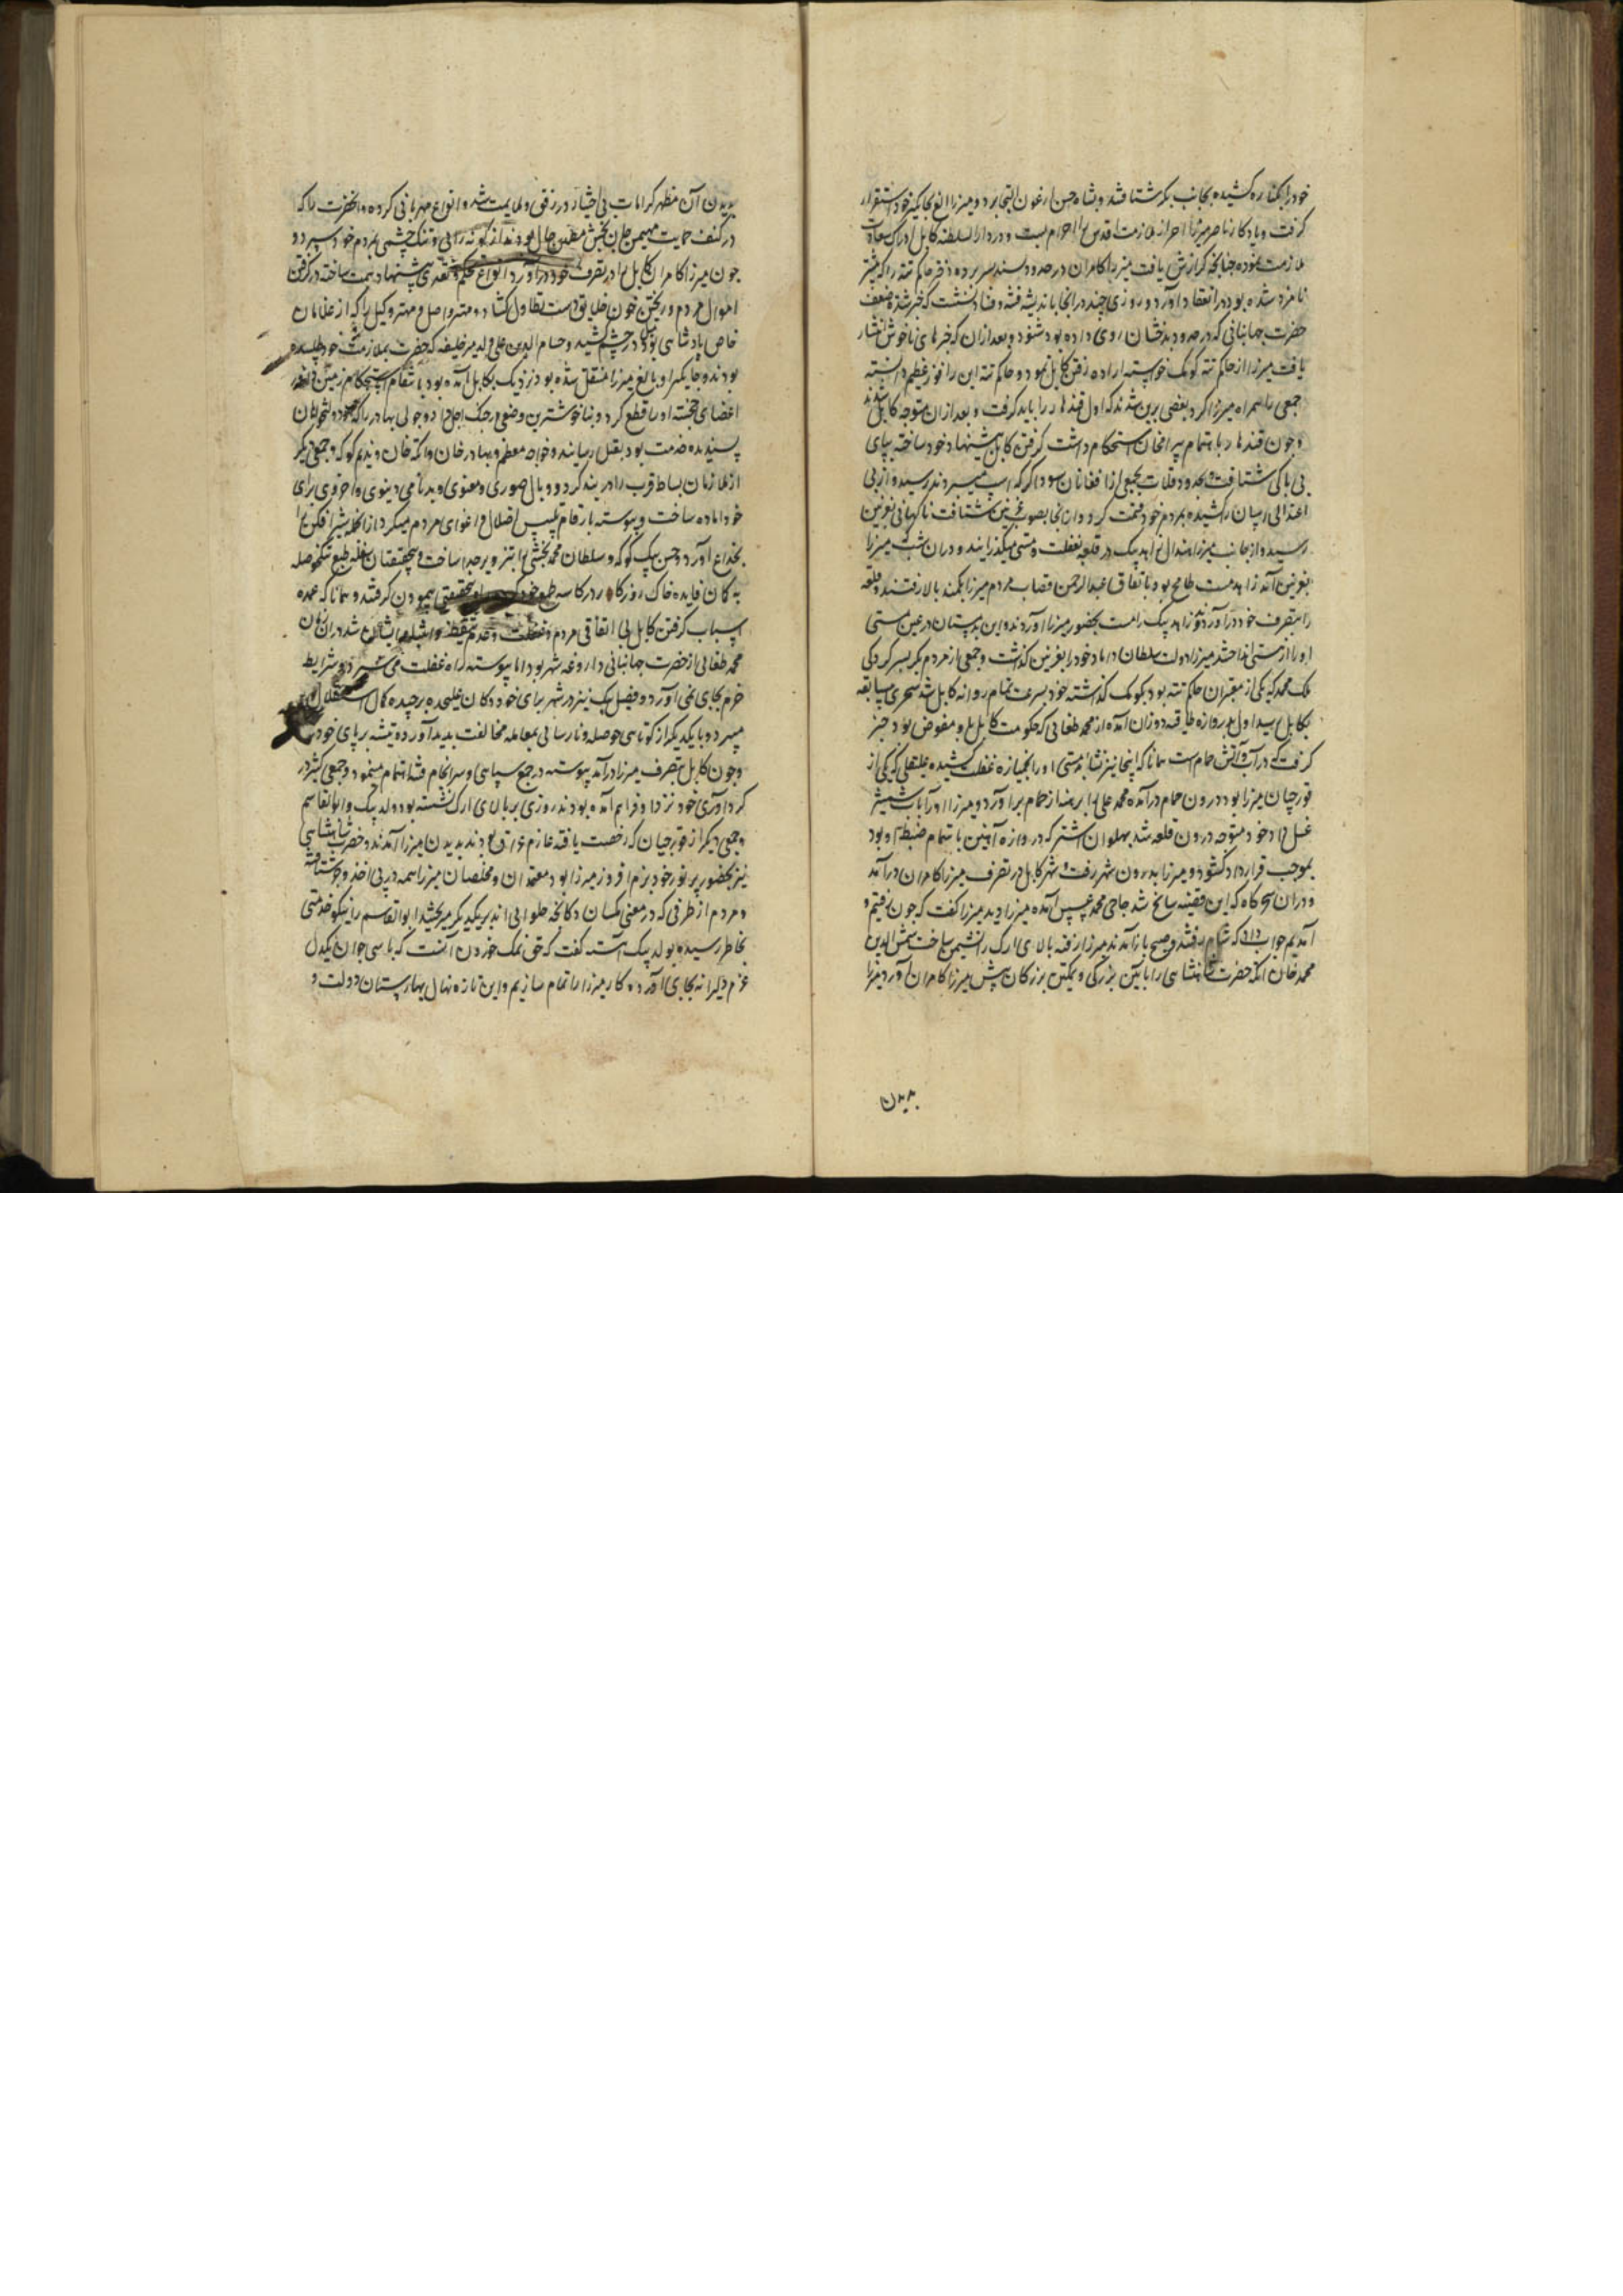 خود را بکناره کشیده بجانب بکر شتافتند و بشاه حسن ارغون التجا برد و میرزا الغ بجایکیر خود استقرار
کرفت و یادکار ناصر میرزا احراز ملازمت اقدس را احرام بست و در دارالسلطنه کابل ادراک سعادت
ملازمت نموده چنانچه کزارش یافت میرزا کامران در حدود سند بسر برده دختر حاکم تته را که پیشتر
نامزد شده بود در انعقاد آورد و روزی چند در انجا باندیشه فتنه و فساد نشست که خبر شدت ضعف
حضرت جهانبانی که در حدود بدخشان روی داده بود شنود و بعد ازان که خبرهای ناخوش انتشار
یافت میرزا از حاکم تته کومک خواسته اراده رفتن کابل نمود و حاکم تته این را فوز عظیم دانسته
جمعی را همراه میرزا کرد بعضی برین شدند که اول قندهار را باید کرفت و بعد ازان متوجه کابل شدند
و چون قندهار باهتمام بیرام خان استحکام داشت کرفتن کابل پیشنهاد خود ساخته بپای
بی باکی شتافت بحدود قلات بجمعی از افغانان سوداکر که اسپ میبردند رسید و از بی
اعتدالی اسپان را کشیده بمردم خود قسمت کرد و ازانجا بصوب غزنین شتافت ناکهانی بغزنین
رسید و از جانب میرزا هندال زاهد بیک در قلعه بغفلت و مستی میکذرانید و دران شب میرزا
بغزنین آمد زاهد مست طافح بود باتفاق عبدالرحمن قصاب مردم میرزا بکمند بالا رفتند و قلعه
را بتصرف خود در آوردند و زاهد بیک را مست بحضور میرزا آوردند و این بدمستان در عین مستی
او را از هستی انداختند میرزا دولت سلطان داماد خود را بغزنین کذاشت و جمعی از مردم بکر بسرکردکی
ملک محمد که یکی از معتبران حاکم تته بود بکومک کذاشته خود بسرعت تمام روانه کابل شد سحری سابقه
بکابل رسید اول بدروازه طاقیه دوزان آمده از محمد طغائی که حکومت کابل باو مفوض بود خبر
کرفت که در آب و آتش حمام است همانا که اینجا نیز نشأه مستی او را بخمیازه غفلت کشیده علیقلی که یکی از
قورچیان میرزا بود درون حمام در آمده محمد علی را برهنه از حمام بر آورد و میرزا او را بآب شمشیر
غسل داد و خود متوجه درون قلعه شد پهلوان اشتر که دروازه آهنین باهتمام ضبط او بود
بموجب قرارداد کشود و میرزا بدرون شهر رفت و شهر کابل در تصرف میرزا کامران در آمد
و دران سحرکاه که این قضیه سانح شد حاجی محمد عسس آمده میرزا دید میرزا کفت که چون رفتیم و
آمدیم جواب داد که شام رفتند و صبح باز آمدند میرزا رفته بالای ارک را نشیمن ساخت شمس الدین
محمد خان اتکه حضرت شاهنشاهی را بآیین بزرکی و تمکین بزرکان پیش میرزا کامران آورد میرزا
بدیدن
بدیدن آن مظهر کرامات بی اختیار در رفق و ملایمت شد و انواع مهربانی کرده و انحضرت را که
در کنف حمایت مهیمن جان بخش مطمئن حال بودند از کوته رائی و تنک چشمی بمردم خود سپرد و
چون میرزا کامران کابل را در تصرف خود در آورد انواع تحکم و تعدی پیشنهاد همت ساخته در کرفتن
اموال مردم و ریختن خون خلایق دست تطاول کشاد و مهتر واصل و مهتر وکیل را که از غلامان
خاص پادشاهی بود میل در چشم کشید و حسام الدین علی ولد میر خلیفه که حضرت بملازمت خود طلبیده
بودند و جایکیر او بالغ میرزا منتقل شده بود نزدیک بکابل آمده بود بانتقام استحکام زمین داور
اعضای خجسته او را قطع کرد و بناخوشترین وضعی در چنک اجل داد و چولی بهادر را که خود دولتخواهان
پسندیده خدمت بود بقتل رسانید و خواجه معظم و بهادر خان و اتکه خان و ندیم کوکه و جمعی دیکر
از ملازمان بساط قرب را در بند کرد و وبال صوری و معنوی و بدنامی دینوی و اخروی برای
خود آماده ساخت و پیوسته بارقام تلبیس اضلال و اغوای مردم میکرد ازانجمله شیر افکن را
بخداع آورد و حسن بیک کوکه و سلطان محمد بخشی را بتزویر جدا ساخت و بیحقیقتان سفله طبع تنک حوصله
به کمان فایده خاک روزکار در کاسه طمع خود کرده راه بیحقیقتی پیمودن کرفتند و همانا که عمده
اسباب کرفتن کابل بی اتفاقی مردم و غفلت و عدم تیقظ و انتباه ایشان شد دران زمان
محمد طغائی از حضرت جهانبانی داروغه شهر بود اما پیوسته راه غفلت می سپرد و شرایط
حزم بجای نمی آورد و فضیل بیک نیز در شهر برای خود دکان علیحده برچیده کمال استقلال
میسپرد و با یکدیکر از کوتاهی حوصله و نارسائی بمعامله مخالفت پدید آورده تیشه بر پای خود
و چون کابل بتصرف میرزا در آمد پیوسته در جمع سپاهی و سرانجام فتنه اهتمام مینمود و جمعی کثیر در
کرد آوری خود نزد او فراهم آمده بودند روزی بر بالای ارک نشسته بود ولد بیک و ابوالقاسم
و جمعی دیکر از قورچیان که رخصت یافته عازم عراق بودند بدیدن میرزا آمدند و حضرت شاهنشاهی
نیز بحضور پر نور خود بزم افروز میرزا بود معتمدان و مخلصان میرزا همه در پی اخذ و جر شتافته
و مردم از طرفی که در معنی مکسان دکانچه حلوائی اند بر یکدیکر میریختند ابوالقاسم را نیکو خدمتی
بخاطر رسیده بولد بیک آهسته کفت که حق نمک خوردن آنست که با سی جوان یکدل
عزم دلیرانه بجای آورده کار میرزا را تمام سازیم و این تازه نهال بهارستان دولت و